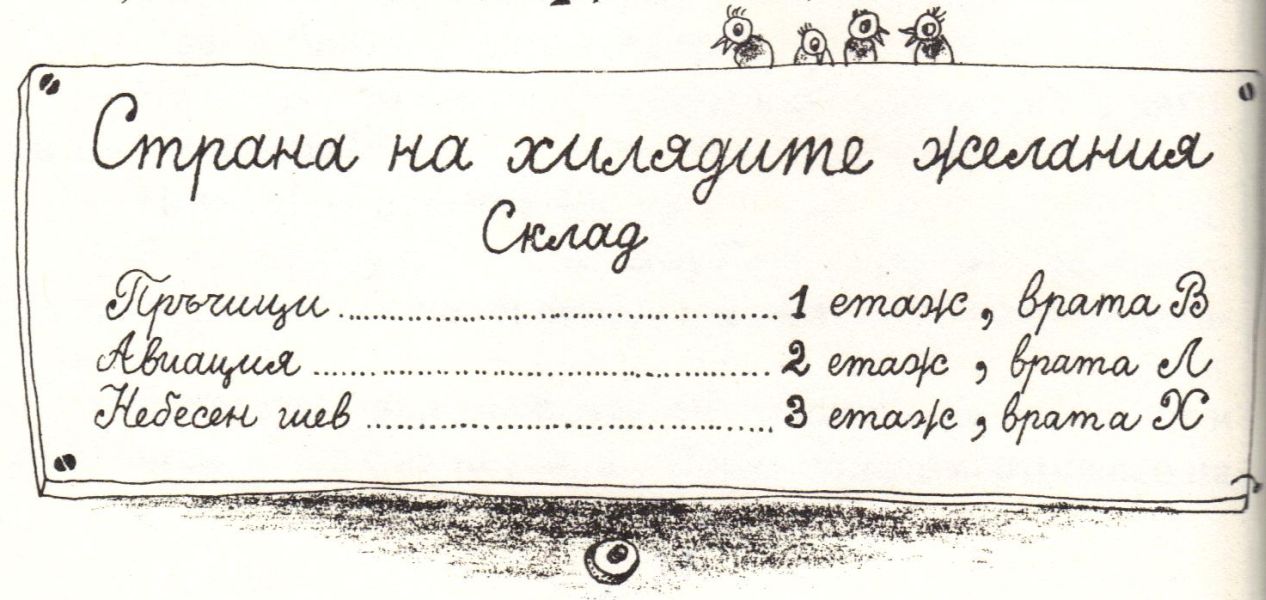 Страна на хилядите желания
Склад
Пръчищи ........................ 1 етаж, врата В
Авиация ........................ 2 етаж, врата Л
Небесен шев ........................ 3 етаж, врата Х